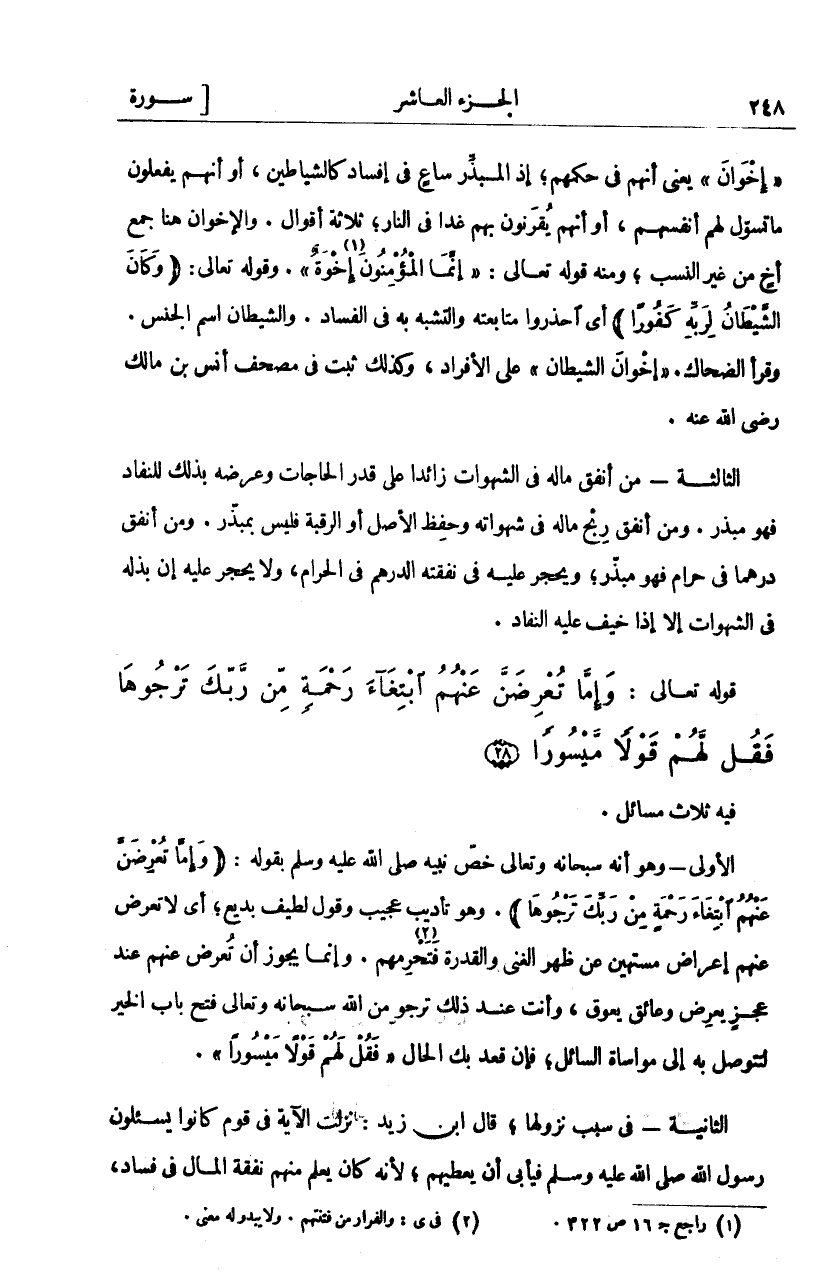 ٢٤٨ الجــزء العـاشر [ ســورة
« إِخْوَانَ » يعنى أنهم فى حكمهم؛ إذ المـبذِّر ساعٍ فى إفساد كالشياطين ، أو أنهـم يفعلون
ما تسوّل لهم أنفسهـم ، أو أنهم يُقرَنون بهم غدا فى النار؛ ثلاثة أقوال . والإخوان هنا جمع
أخٍ من غير النسب ؛ ومنه قوله تعـالى : « إِنَّمَا الْمُؤْمِنُونَ إِخْوَةٌ (١)» . وقوله تعالى: ﴿ وَكَانَ
الشَّيْطَانُ لِرَبِّهِ كَفُورًا ﴾ أى ٱحذروا متابعته والتشبه به فى الفساد . والشيطان اسم الجنس .
وقرأ الضحاك. «إخْوانَ الشيطان » على الأفراد ، وكذلك ثبت فى مصحف أنس بن مالك
رضى الله عنه .
الثالثــة — من أنفق ماله فى الشهوات زائدا على قدر الحاجات وعرضه بذلك للنفاد
فهو مبذر . ومن أنفق رِبْح ماله فى شهواته وحفِظ الأصل أو الرقبة فليس بمبذّر . ومن أنفق
درهما فى حرام فهو مبذّر؛ ويحجر عليـه فى نفقته الدرهم فى الحرام، ولا يحجر عليه إن بذله
فى الشهوات إلا إذا خيف عليه النفاد .
قوله تعـالى : وَإِمَّا تُعْرِضَنَّ عَنْهُمُ ٱبْتِغَآءَ رَحْمَةٍ مِّن رَّبِّكَ تَرْجُوهَا
فَقُـل لَّهُـمْ قَوْلًا مَّيْسُورًا ﴿٢٨﴾
فيه ثلاث مسائل .
الأولى — وهو أنه سبحانه وتعالى خصّ نبيه صلى الله عليه وسلم بقوله : ﴿ وَإِمَّا تُعْرِضَنَّ
عَنْهُمُ ٱبْتِغَاءَ رَحْمَةٍ مِنْ رَبِّكَ تَرْجُوهَا ﴾ . وهو تأديب عجيب وقول لطيف بديع؛ أى لا تعرض
عنهم إعراض مستهين عن ظهر الغنى والقدرة فَتَحْرِمهم (٢) . وإنمـا يجوز أن تُعرض عنهم عند
عجـزٍ يعرِض وعائق يعوق ، وأنت عنـد ذلك ترجو من الله سـبحانه وتعالى فتح باب الخير
لتتوصل به إلى مواساة السائل؛ فإن قعد بك الحال « فَقُلْ لَهُمْ قَوْلًا مَيْسُورًا » .
الثانيـة — فى سبب نزولها ؛ قال ابن زيد : نزلت الآية فى قوم كانوا يسـئلون
رسول الله صلى الله عليه وسـلم فيأبى أن يعطيهم ؛ لأنه كان يعلم منهم نفقة المـال فى فساد،
(١) راجع جـ ١٦ ص ٣٢٢ . (٢) فى ى : والفرار من فتنتهم . ولا يبدو له معنى .